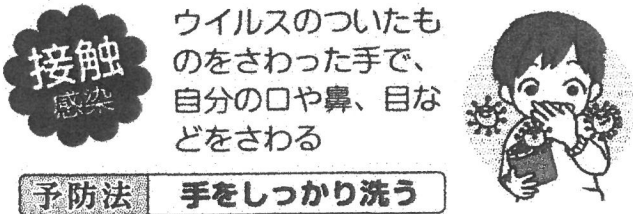 接触
感染
ウイルスのついたも
のをさわった手で、
自分の口や鼻、目な
どをさわる
予防法 手をしっかり洗う